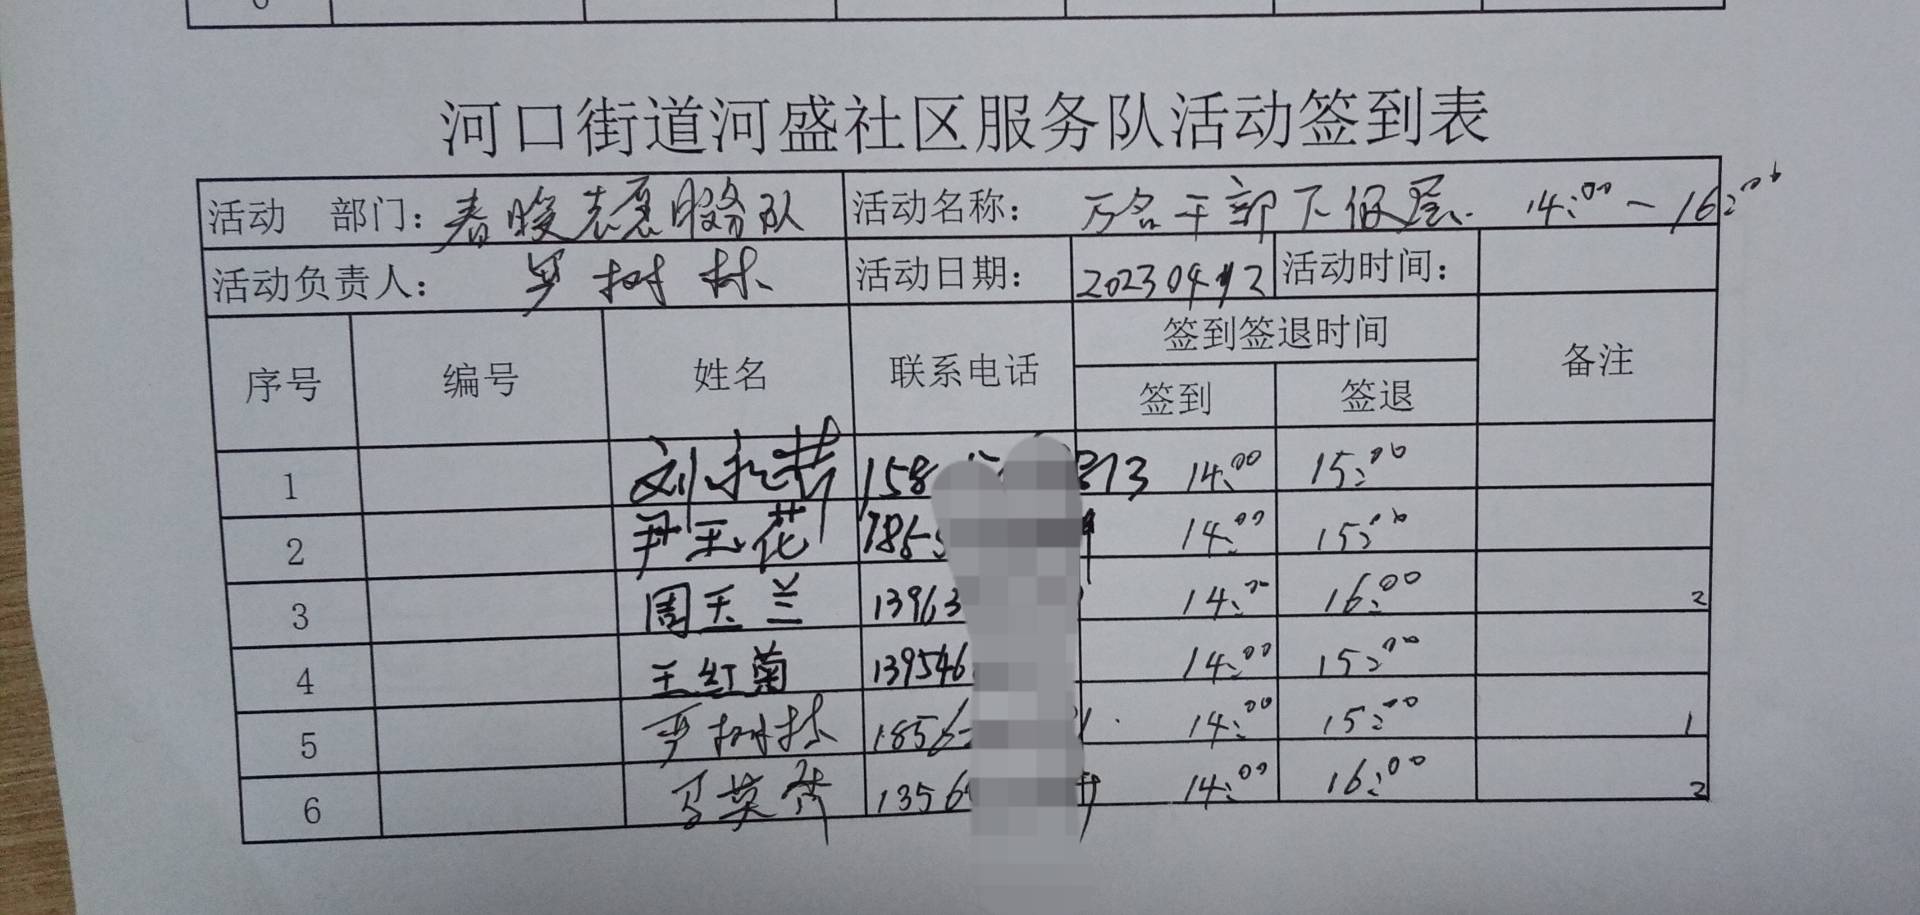 河口街道河盛社区服务队活动签到表
活动 部门：春暖志愿服务队 活动名称：万名干部下基层 14:00～16:00
活动负责人： 树林 活动日期：20230412 活动时间：
序号 编号 姓名 联系电话 签到签退时间 备注
签到 签退
1 刘 158 813 14:00 15:00
2 尹玉花 14:00 15:00
3 周玉兰 13963 14:00 16:00 2
4 王红菊 139546 14:00 15:00
5 树林 1856 14:00 15:00 1
6 马英 1356 14:00 16:00 2